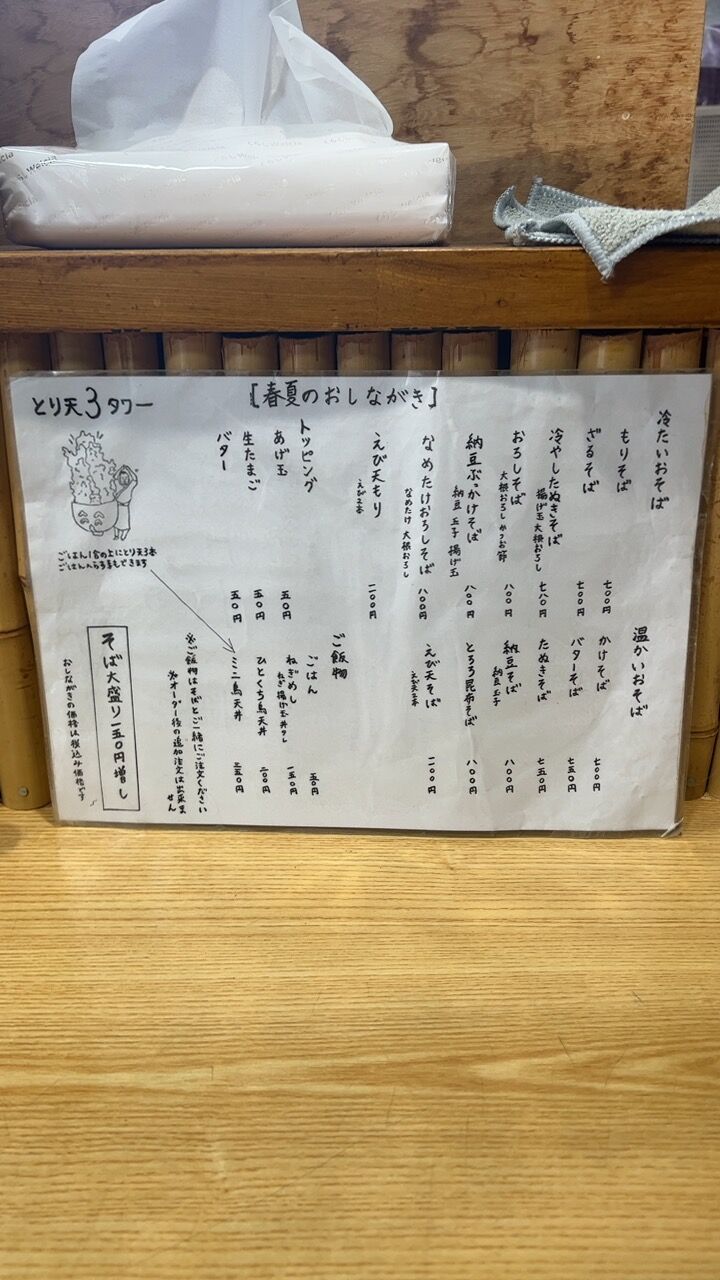 [春夏のおしながき]
冷たいおそば
もりそば 七〇〇円
ざるそば 七〇〇円
冷やしたぬきそば 七八〇円
揚げ玉 大根おろし
おろしそば 八〇〇円
大根おろし かつお節
納豆ぶっかけそば 八〇〇円
納豆 玉子 揚げ玉
なめたけおろしそば 八〇〇円
なめたけ 大根おろし
えび天もり 一一〇〇円
えび2本
トッピング
あげ玉 五〇円
生たまご 五〇円
バター 五〇円
とり天3タワー
ごはん1合の上にとり天3本
ごはんへらす事もできます
温かいおそば
かけそば 七〇〇円
バターそば 七五〇円
たぬきそば 七五〇円
納豆そば 八〇〇円
納豆 玉子
とろろ昆布そば 八〇〇円
えび天そば 一一〇〇円
えび天2本
ご飯物
ごはん 五〇円
ねぎめし 一五〇円
ねぎ 揚げ玉 丼タレ
ひとくち鳥天丼 二〇〇円
ミニ鳥天丼 三五〇円
※ご飯物はそばとご一緒にご注文ください
※オーダー後の追加注文は出来ません
そば大盛り一五〇円増し
おしながきの価格は税込み価格です